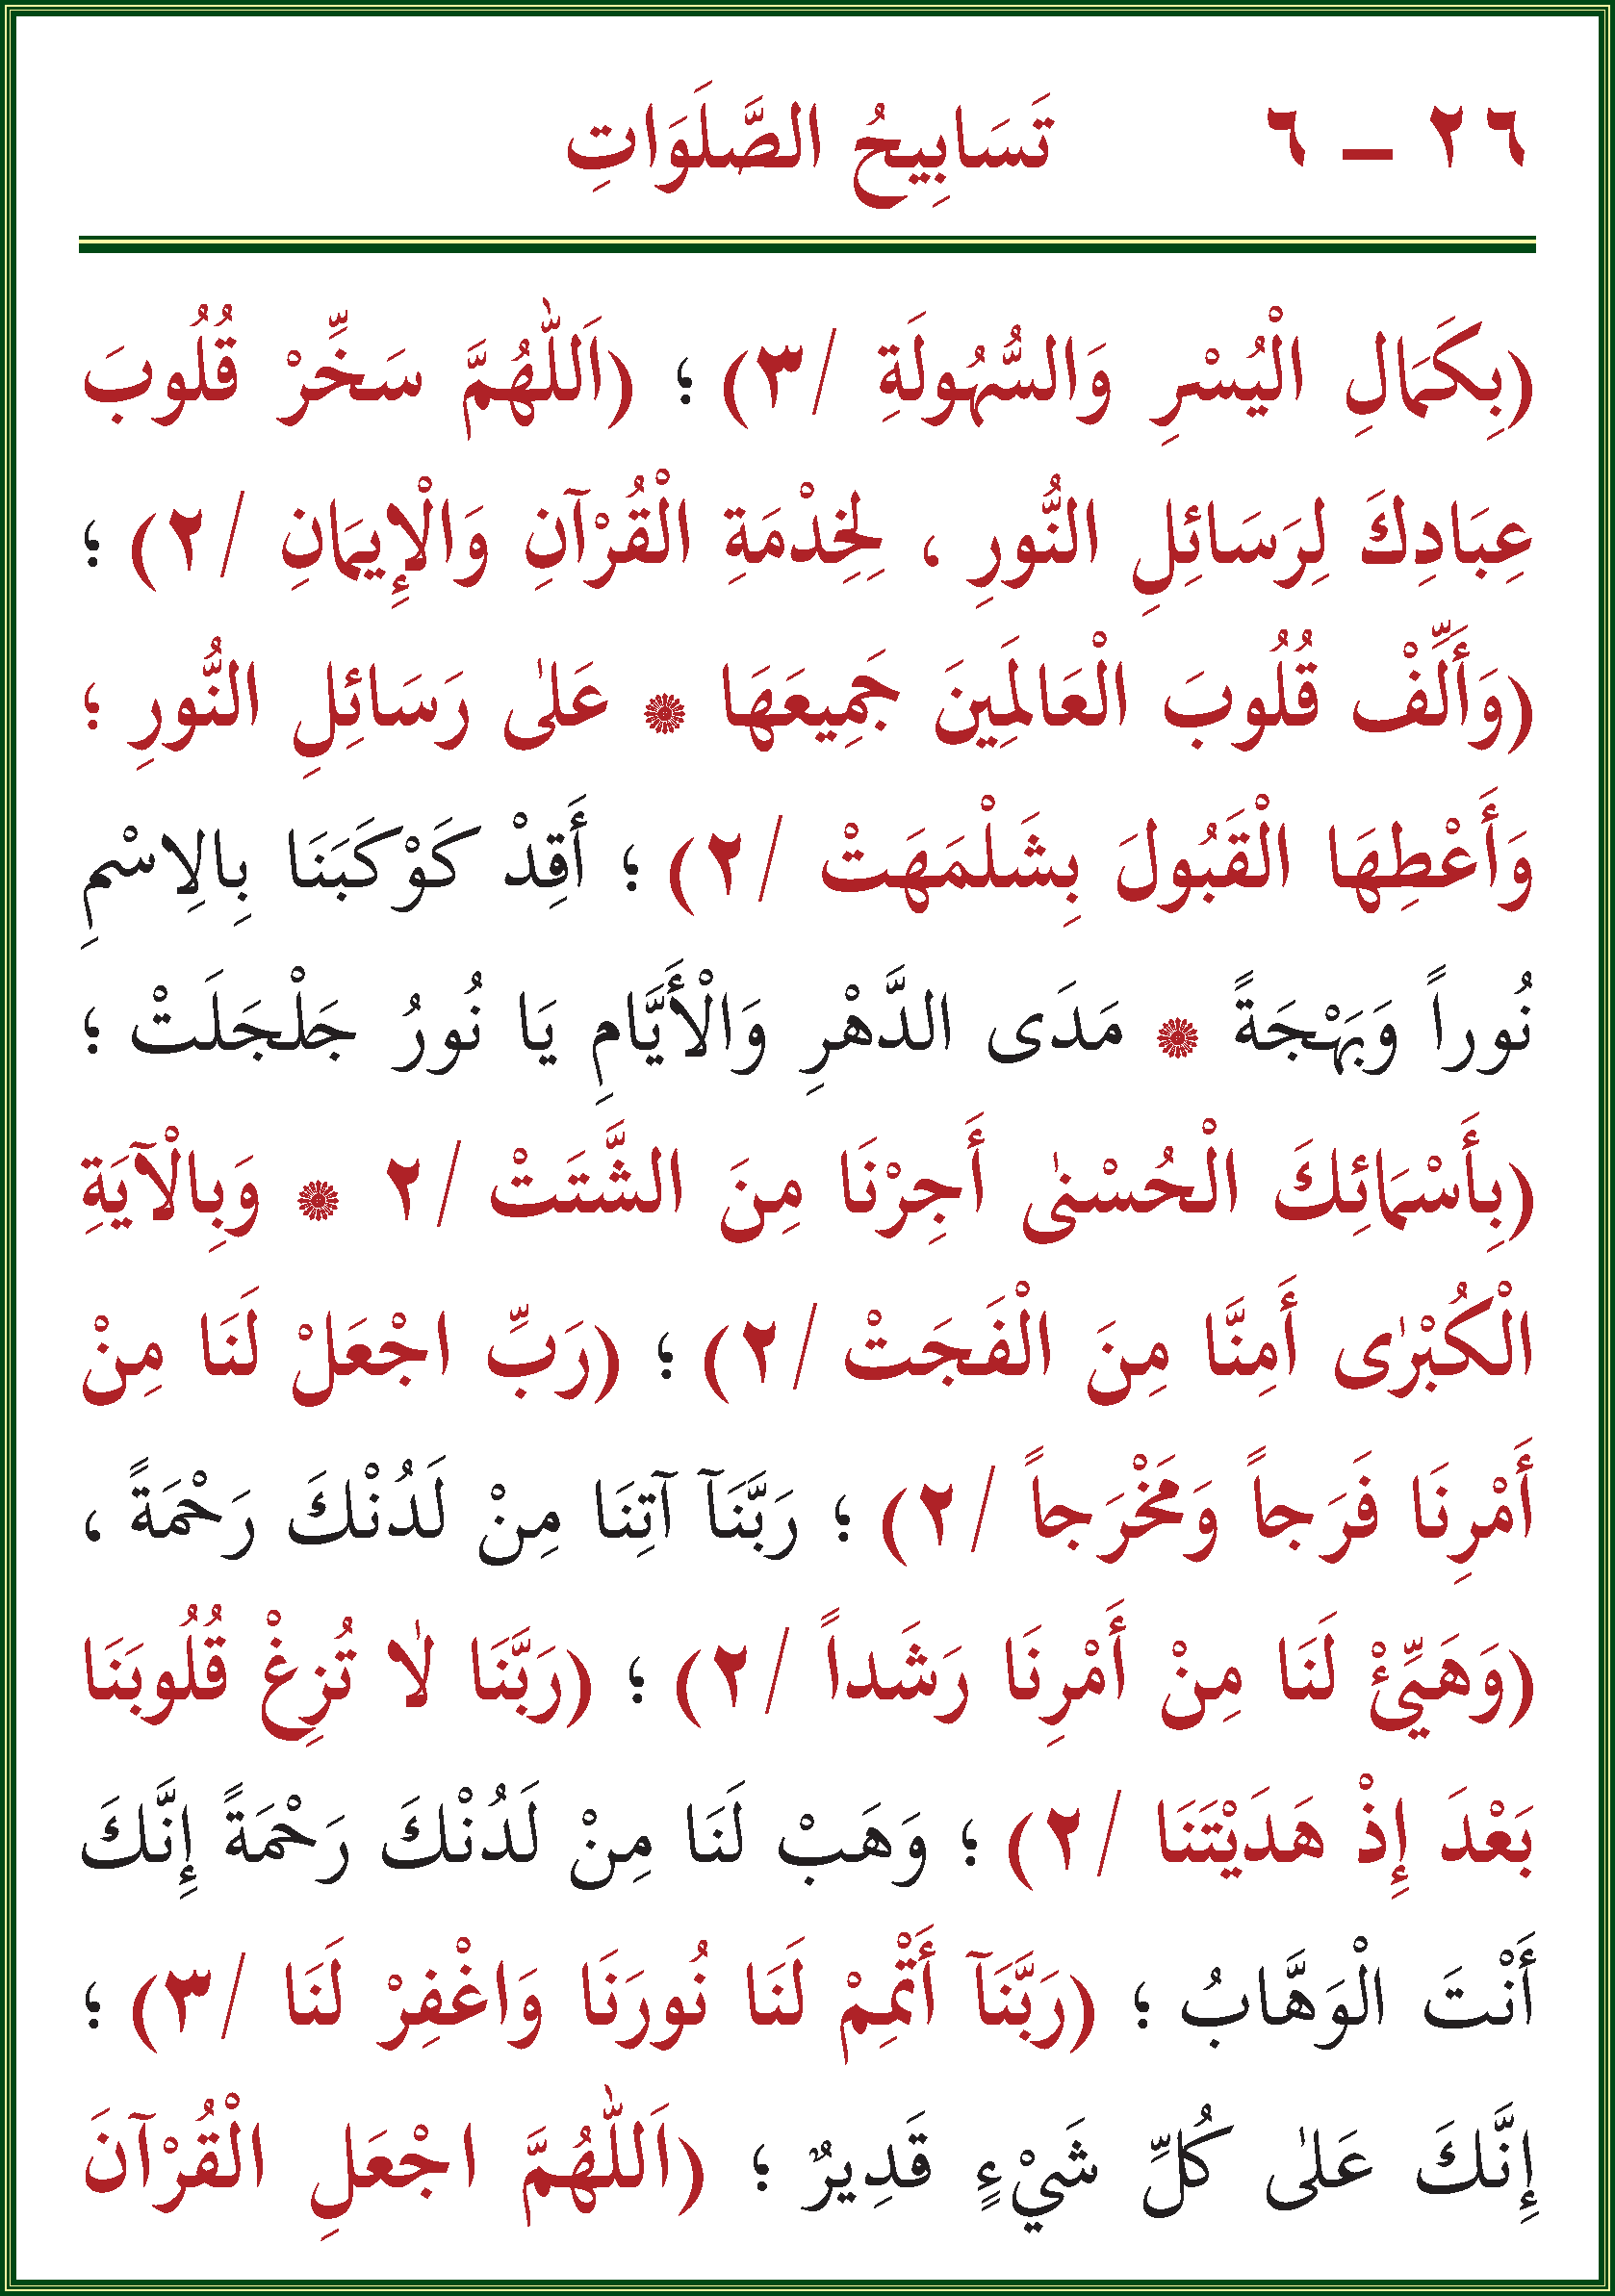 ٢٦ – ٦ تَسَابِيحُ الصَّلَوَاتِ
(بِكَمَالِ الْيُسْرِ وَالسُّهُولَةِ /٣) ؛ (اَللّٰهُمَّ سَخِّرْ قُلُوبَ
عِبَادِكَ لِرَسَائِلِ النُّورِ ، لِخِدْمَةِ الْقُرْآنِ وَالْإِيمَانِ /٢) ؛
(وَأَلِّفْ قُلُوبَ الْعَالَمِينَ جَمِيعَهَا ۞ عَلٰى رَسَائِلِ النُّورِ ؛
وَأَعْطِهَا الْقَبُولَ بِشَلْمَهَتْ /٢) ؛ أَقِدْ كَوْكَبَنَا بِالِاسْمِ
نُوراً وَبَهْجَةً ۞ مَدَى الدَّهْرِ وَالْأَيَّامِ يَا نُورُ جَلْجَلَتْ ؛
(بِأَسْمَائِكَ الْحُسْنٰى أَجِرْنَا مِنَ الشَّتَتْ /٢ ۞ وَبِالْآيَةِ
الْكُبْرٰى أَمِنَّا مِنَ الْفَجَتْ /٢) ؛ (رَبِّ اجْعَلْ لَنَا مِنْ
أَمْرِنَا فَرَجاً وَمَخْرَجاً /٢) ؛ رَبَّنَآ آتِنَا مِنْ لَدُنْكَ رَحْمَةً ،
(وَهَيِّئْ لَنَا مِنْ أَمْرِنَا رَشَداً /٢) ؛ (رَبَّنَا لٰا تُزِغْ قُلُوبَنَا
بَعْدَ إِذْ هَدَيْتَنَا /٢) ؛ وَهَبْ لَنَا مِنْ لَدُنْكَ رَحْمَةً إِنَّكَ
أَنْتَ الْوَهَّابُ ؛ (رَبَّنَآ أَتْمِمْ لَنَا نُورَنَا وَاغْفِرْ لَنَا /٣) ؛
إِنَّكَ عَلٰى كُلِّ شَيْءٍ قَدِيرٌ ؛ (اَللّٰهُمَّ اجْعَلِ الْقُرْآنَ